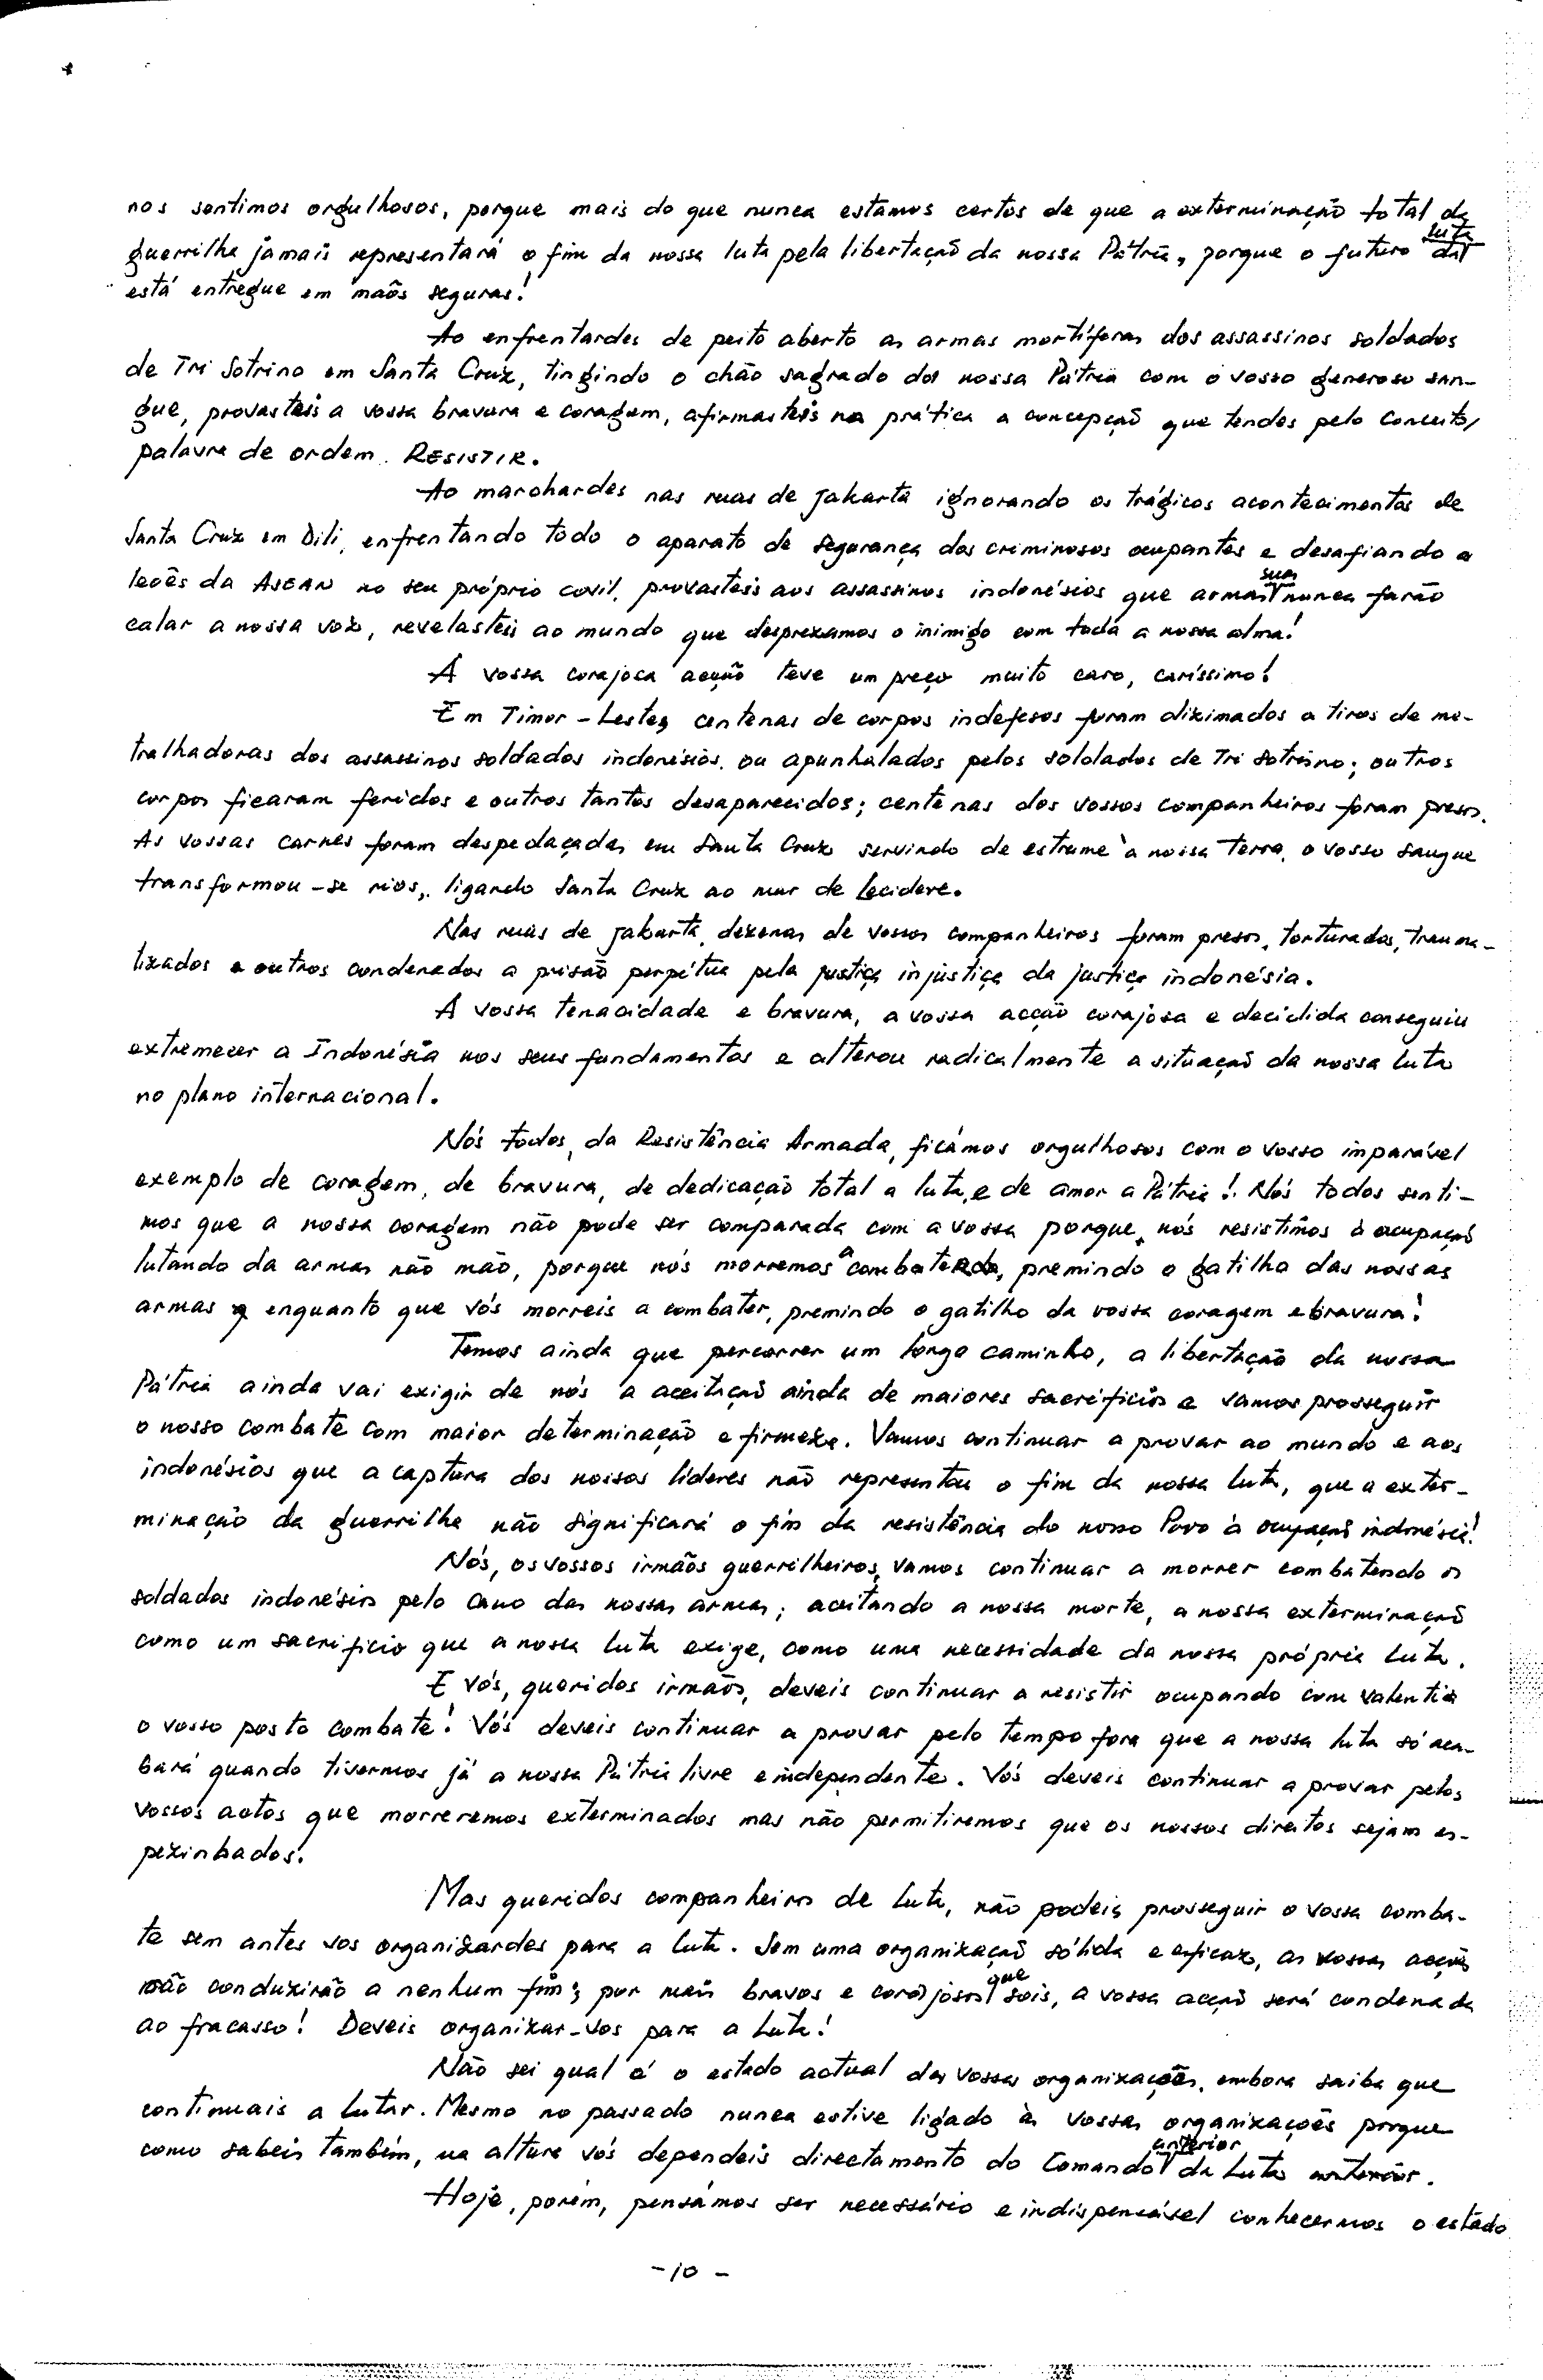 nos sentimos orgulhosos, porque mais do que nunca estamos certos de que a exterminação total da
guerrilha jamais representará o fim da nossa luta pela libertação da nossa Pátria, porque o futuro da luta
está entregue em mãos seguras!
Ao enfrentardes de peito aberto as armas mortíferas dos assassinos soldados
de Tri Sotrino em Santa Cruz, tingindo o chão sagrado da nossa Pátria com o vosso generoso san-
gue, provasteis a vossa bravura e coragem, afirmasteis na prática a concepção que tendes pelo conceito/
palavra de ordem RESISTIR.
Ao marchardes nas ruas de Jakarta ignorando os trágicos acontecimentos de
Santa Cruz em Dili, enfrentando todo o aparato de segurança dos criminosos ocupantes e desafiando o
leões da ASEAN no seu próprio covil, provasteis aos assassinos indonésios que suas armas nunca farão
calar a nossa voz, revelasteis ao mundo que desprezamos o inimigo com toda a nossa alma!
A vossa corajosa acção teve um preço muito caro, caríssimo!
Em Timor-Leste, centenas de corpos indefesos foram dizimados a tiros de me-
tralhadoras dos assassinos soldados indonésios, ou apunhalados pelos soldados de Tri Sotrino; outros
corpos ficaram feridos e outros tantos desaparecidos; centenas dos vossos companheiros foram presos.
As vossas carnes foram despedaçadas em Santa Cruz servindo de estrume à nossa Terra, o vosso sangue
transformou-se rios, ligando Santa Cruz ao mar de Lecidere.
Nas ruas de Jakarta, dezenas de vossos companheiros foram presos, torturados, trauma-
tizados e outros condenados a prisão perpétua pela justiça injustiça da justiça indonésia.
A vossa tenacidade e bravura, a vossa acção corajosa e decidida conseguiu
extremecer a Indonésia nos seus fundamentos e alterou radicalmente a situação da nossa luta
no plano internacional.
Nós todos, da Resistência Armada, ficámos orgulhosos com o vosso imparável
exemplo de coragem, de bravura, de dedicação total a luta, e de amor a Pátria! Nós todos senti-
mos que a nossa coragem não pode ser comparada com a vossa porque, nós resistimos à ocupação
lutando da armas não mão, porque nós morremos a combater, premindo o gatilho das nossas
armas enquanto que vós morreis a combater, premindo o gatilho da vossa coragem e bravura!
Temos ainda que percorrer um longo caminho, a libertação da nossa
Pátria ainda vai exigir de nós a aceitação ainda de maiores sacrifícios e vamos prosseguir
o nosso combate com maior determinação e firmeza. Vamos continuar a provar ao mundo e aos
indonésios que a captura dos nossos líderes não representou o fim da nossa luta, que a exter-
minação da guerrilha não significará o fim da resistência do nosso Povo à ocupação indonésia!
Nós, os vossos irmãos guerrilheiros, vamos continuar a morrer combatendo os
soldados indonésios pelo cano das nossas armas; aceitando a nossa morte, a nossa exterminação
como um sacrifício que a nossa luta exige, como uma necessidade da nossa própria luta.
E vós, queridos irmãos, deveis continuar a resistir ocupando com valentia
o vosso posto combate! Vós deveis continuar a provar pelo tempo fora que a nossa luta só aca-
bará quando tivermos já a nossa Pátria livre e independente. Vós deveis continuar a provar pelos
vossos actos que morreremos exterminados mas não permitiremos que os nossos direitos sejam es-
pezinhados!
Mas queridos companheiros de luta, não podeis prosseguir o vossa comba-
te sem antes vos organizardes para a luta. Sem uma organização sólida e eficaz, as vossas acções
não conduzirão a nenhum fim; por mais bravos e corajosos que sois, a vossa acção será condenada
ao fracasso! Deveis organizar-vos para a luta!
Não sei qual é o estado actual das vossas organizações, embora saiba que
continuais a lutar. Mesmo no passado nunca estive ligado às vossas organizações porque
como sabeis também, na altura vós dependeis directamento do Comando anterior da Luta.
Hoje, porém, pensámos ser necessário e indispensável conhecermos o estado
-10-